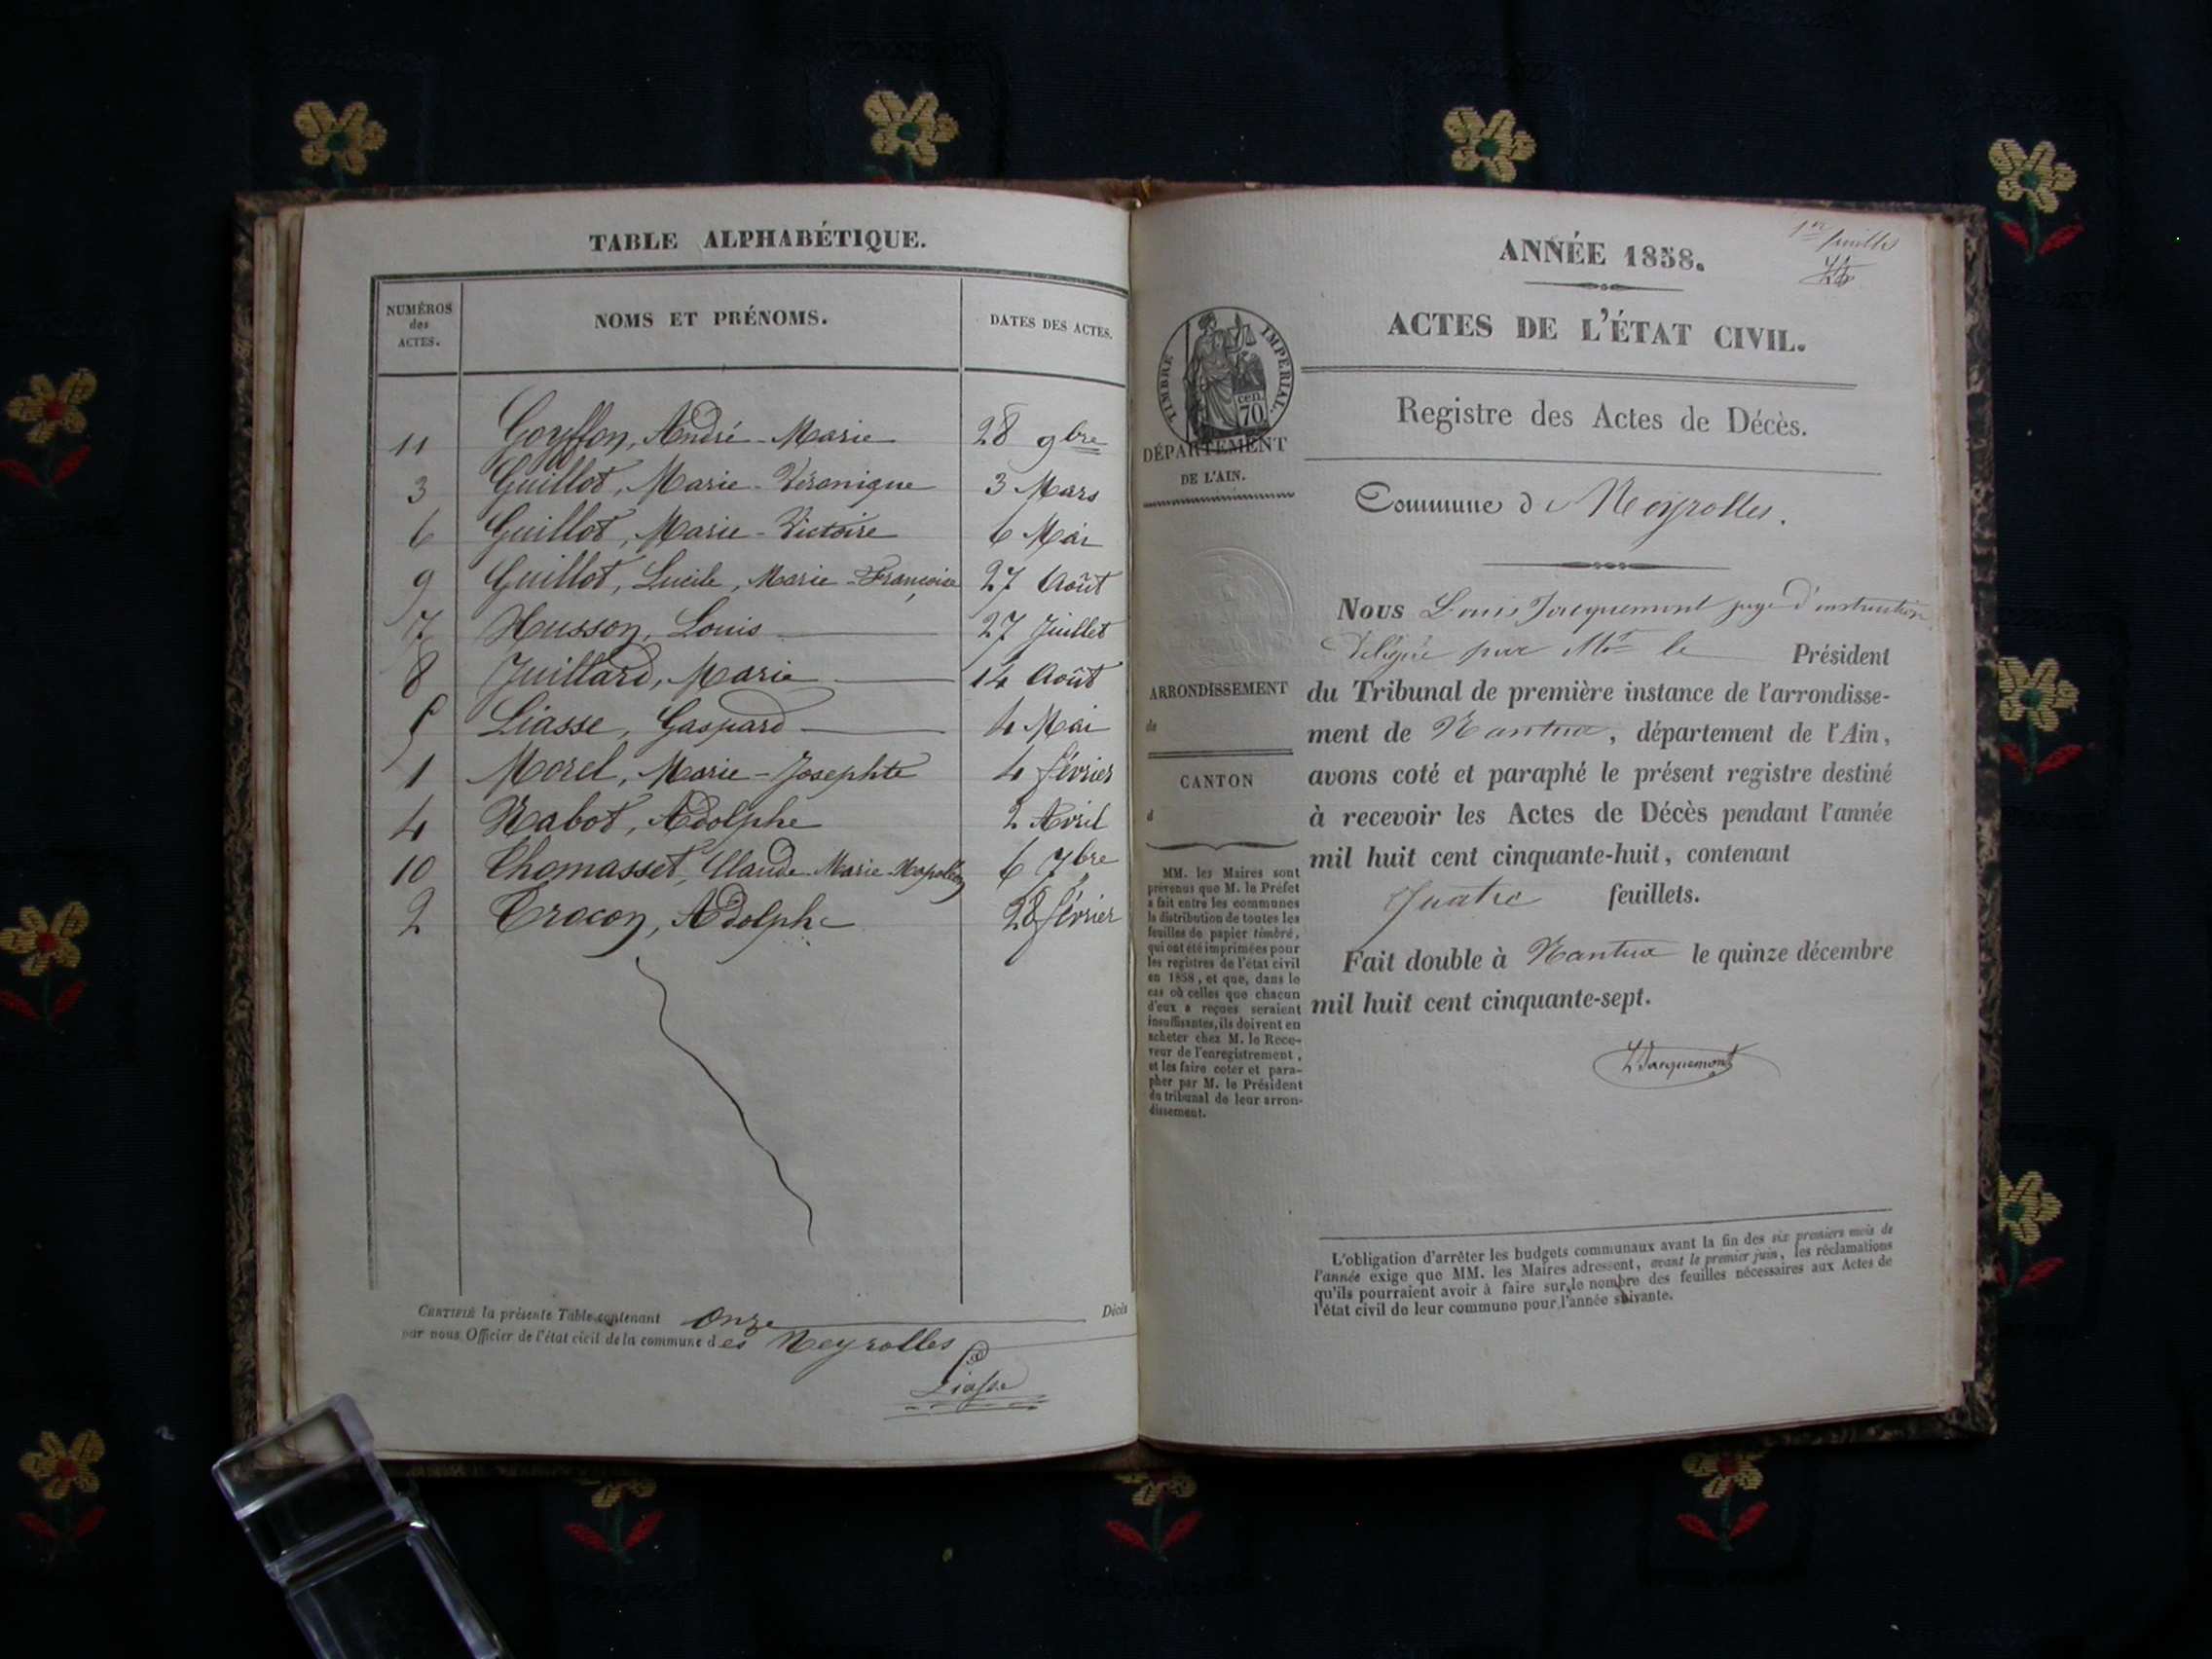 TABLE ALPHABÉTIQUE.
NUMÉROS des ACTES. NOMS ET PRÉNOMS. DATES DES ACTES.
11 Goyffon, André-Marie 28 9bre
3 Guillot, Marie-Véronique 3 Mars
6 Guillot, Marie-Victoire 6 Mai
9 Guillot, Lucile, Marie-Françoise 27 Août
7 Husson, Louis 27 Juillet
8 Juillard, Marie 14 Août
5 Liasse, Gaspard 4 Mai
1 Morel, Marie-Josephte 4 février
4 Nabot, Adolphe 2 Avril
10 Thomasset, Claude-Marie-Napoléon 6 7bre
2 Trocon, Adolphe 28 février
CERTIFIÉ la présente Table contenant Onze Décès
par nous Officier de l'état civil de la commune des Neyrolles
Liasse
1er feuillet
ANNÉE 1858.
ACTES DE L'ÉTAT CIVIL.
TIMBRE IMPÉRIAL.
cen.
70
DÉPARTEMENT
DE L'AIN.
Registre des Actes de Décès.
Commune d Neyrolles.
Nous Louis Jacquemont juge d'instruction
Délégué par Mr le Président
du Tribunal de première instance de l'arrondisse-
ment de Nantua, département de l'Ain,
avons coté et paraphé le présent registre destiné
à recevoir les Actes de Décès pendant l'année
mil huit cent cinquante-huit, contenant
Quatre feuillets.
Fait double à Nantua le quinze décembre
mil huit cent cinquante-sept.
L Jacquemont
ARRONDISSEMENT
de
CANTON
d
MM. les Maires sont
prévenus que M. le Préfet
a fait entre les communes
la distribution de toutes les
feuilles de papier timbré,
qui ont été imprimées pour
les registres de l'état civil
en 1858, et que, dans le
cas où celles que chacun
d'eux a reçues seraient
insuffisantes, ils doivent en
acheter chez M. le Rece-
veur de l'enregistrement,
et les faire coter et para-
pher par M. le Président
du tribunal de leur arron-
dissement.
L'obligation d'arrêter les budgets communaux avant la fin des six premiers mois de
l'année exige que MM. les Maires adressent, avant le premier juin, les réclamations
qu'ils pourraient avoir à faire sur le nombre des feuilles nécessaires aux Actes de
l'état civil de leur commune pour l'année suivante.